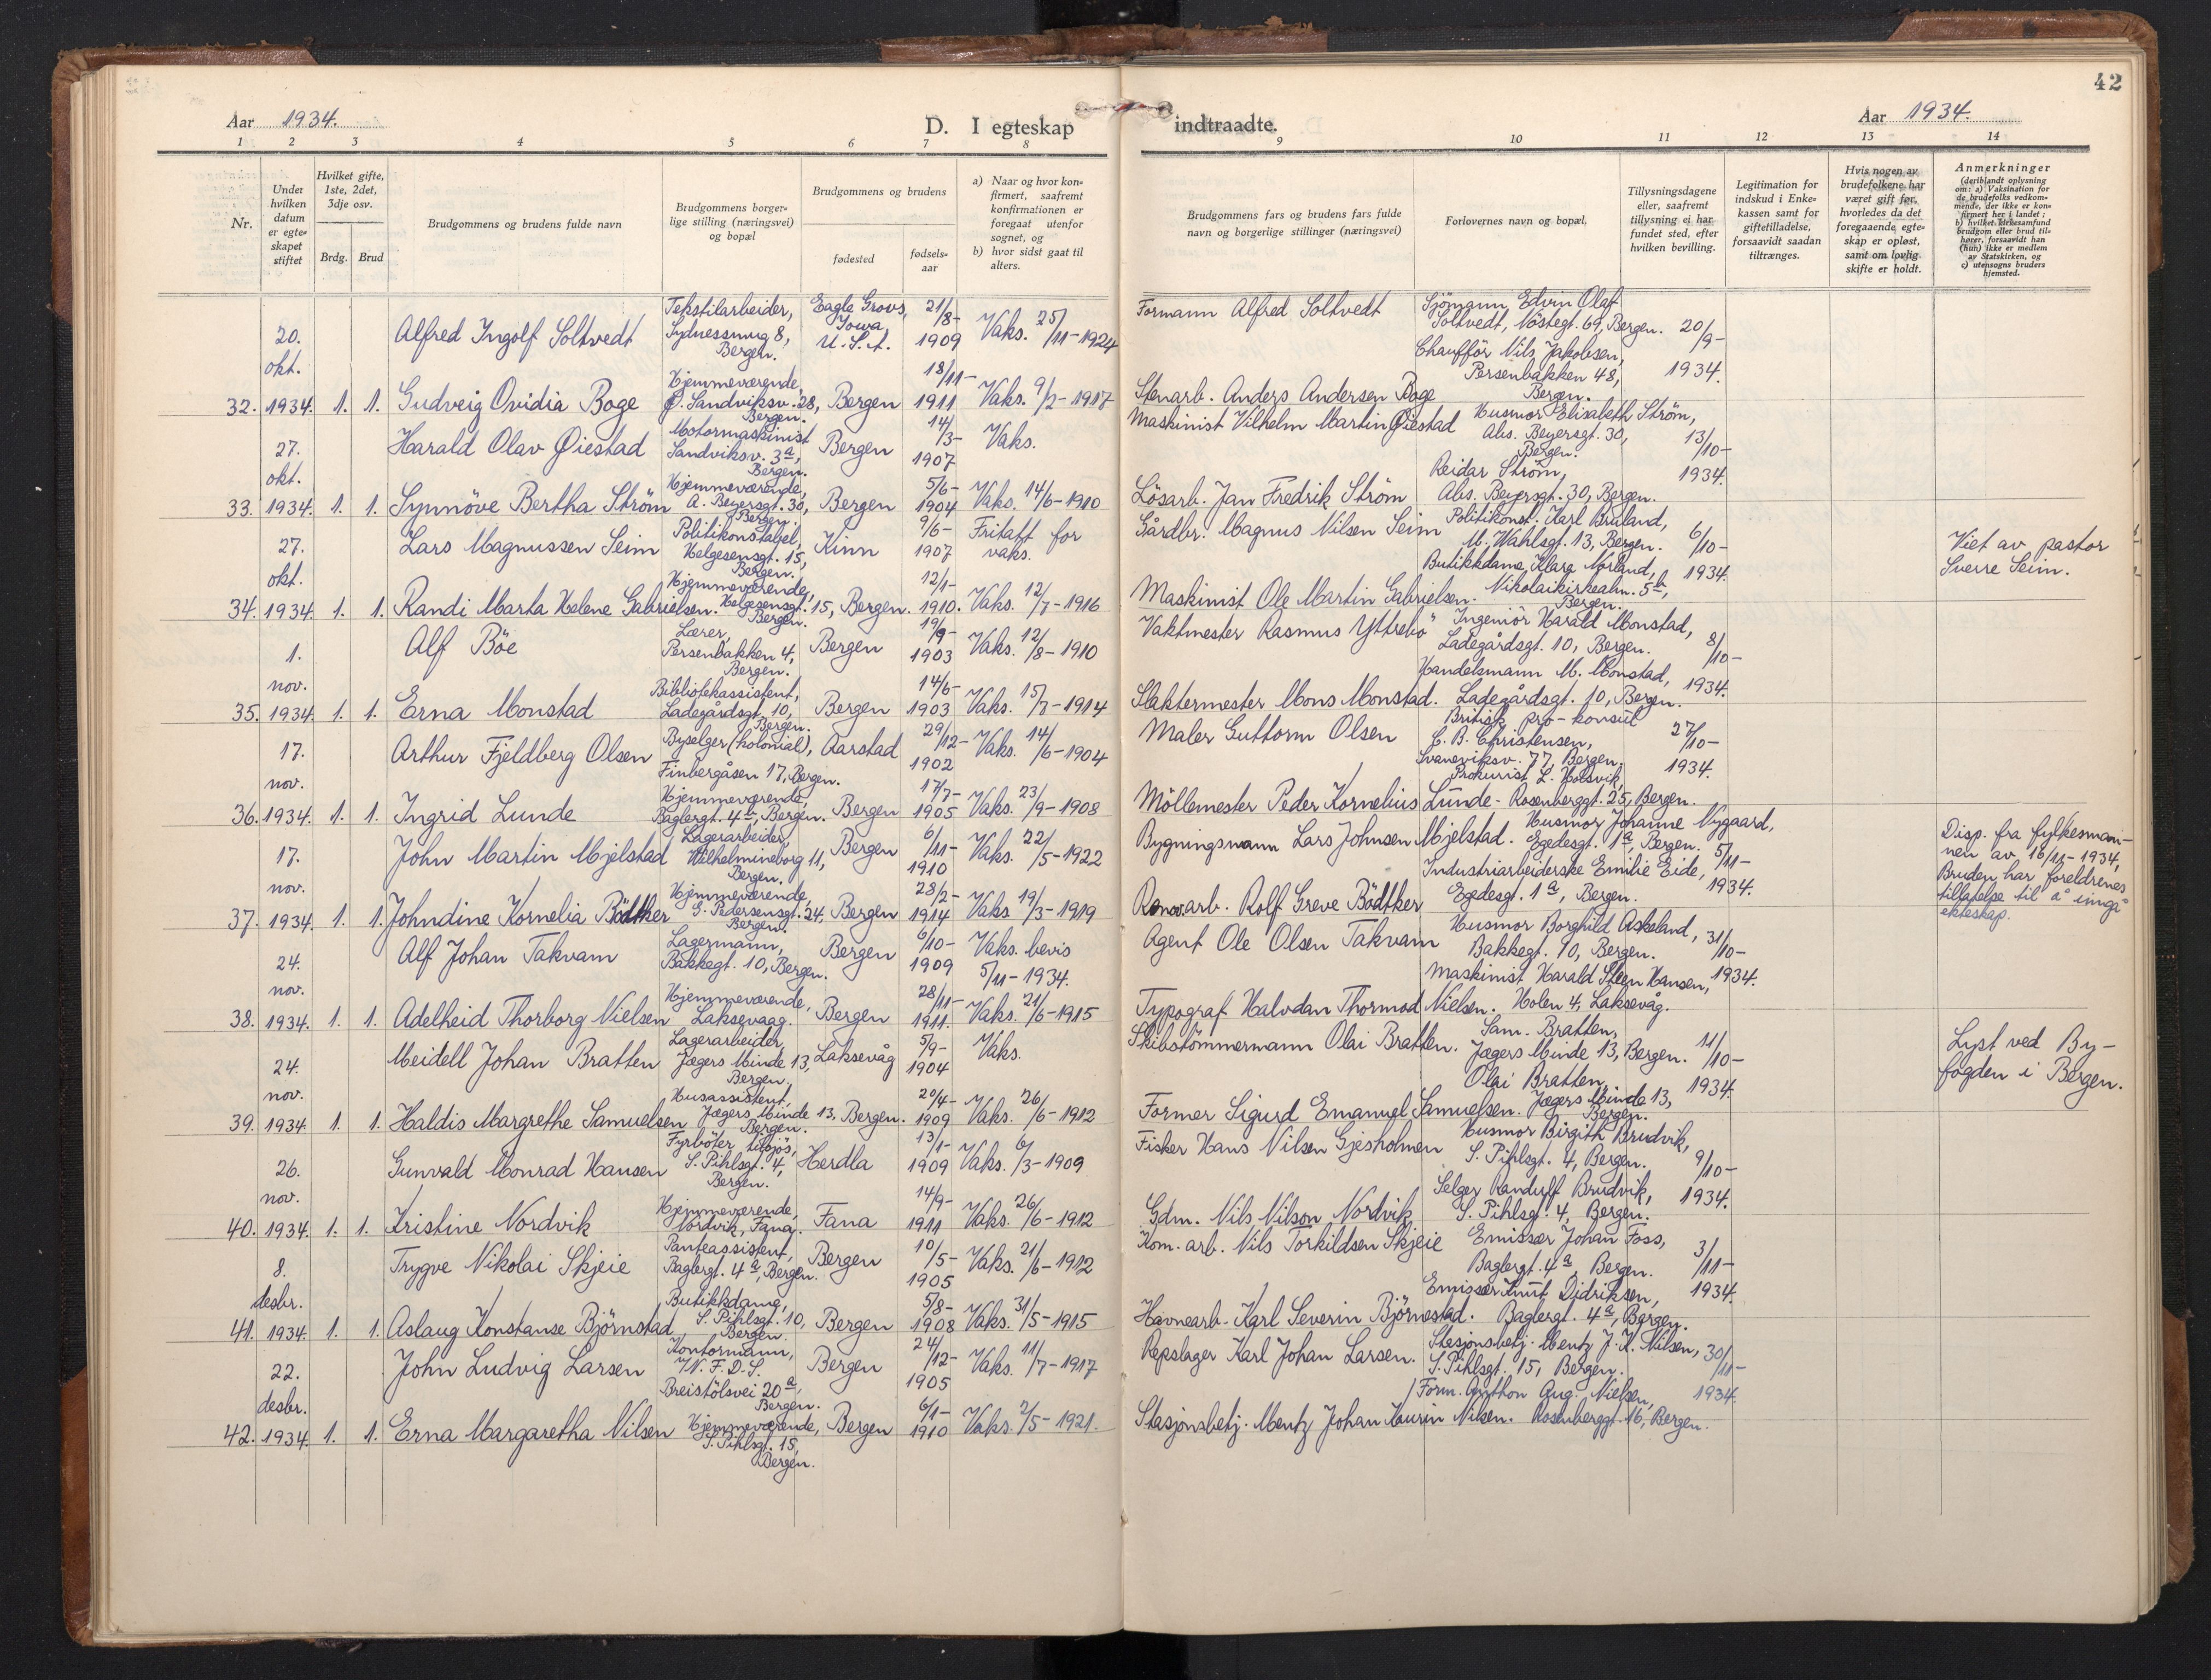 42
Aar 1934.
D. I egteskap indtraadte.
Aar 1934.
1 2 3 4 5 6 7 8 9 10 11 12 13 14
Nr.
Under hvilken datum er egte-skapet stiftet
Hvilket gifte, 1ste, 2det, 3dje osv.
Brdg. Brud
Brudgommens og brudens fulde navn
Brudgommens borger-lige stilling (næringsvei) og bopæl
Brudgommens og brudens
fødested
fødsels-aar
a) Naar og hvor kon-firmert, saafremt konfirmationen er foregaat utenfor sognet, og
b) hvor sidst gaat til alters.
Brudgommens fars og brudens fars fulde navn og borgerlige stillinger (næringsvei)
Forlovernes navn og bopæl.
Tillysningsdagene eller, saafremt tillysning ei har fundet sted, efter hvilken bevilling.
Legitimation for indskud i Enke-kassen samt for giftetilladelse, forsaavidt saadan tiltrænges.
Hvis nogen av brudefolkene har været gift før, hvorledes da det foregaaende egte-skap er opløst, samt om lovlig skifte er holdt.
Anmerkninger
(deriblandt oplysning om: a) Vaksination for de brudefolks vedkom-mende, der ikke er kon-firmert her i landet; b) hvilket kirkesamfund brudgom eller brud til-hører, forsaavidt han (hun) ikke er medlem av Statskirken, og c) utensogns bruders hjemsted.
32. 20. okt. 1934. 1. 1.
Alfred Ingolf Soltvedt
Tekstilarbeider, Sydnessmug 8, Bergen.
Eagle Grove, Iowa, U.S.A.
21/8-1909
Vaks. 25/11-1924
Formann Alfred Soltvedt
Sjömann Edvin Olaf Soltvedt, Nöstegt. 69, Bergen.
20/9-1934.
Gudveig Ovidia Boge
Hjemmeværende, Ø. Sandviksv. 28, Bergen.
Bergen
18/11-1911
Vaks. 9/2-1917
Stenarb. Anders Andersen Boge
Chaufför Nils Jakobsen, Persenbakken 48, Bergen.
33. 27. okt. 1934. 1. 1.
Harald Olav Øiestad
Motormaskinist Sandviksv. 3a, Bergen.
Bergen
14/3-1907
Vaks.
Maskinist Vilhelm Martin Øiestad
Husmor Elisabeth Ström, Abs. Beyersgt. 30, Bergen.
13/10-1934.
Synnöve Bertha Ström
Hjemmeværende, A. Beyersgt. 30, Bergen.
Bergen
5/6-1904
Vaks. 14/6-1910
Lösarb. Jan Fredrik Ström
Reidar Ström, Abs. Beyersgt. 30, Bergen.
34. 27. okt. 1934. 1. 1.
Lars Magnussen Seim
Politikonstabel, Helgesensgt. 15, Bergen.
Kinn
9/6-1907
Fritatt for vaks.
Gårdbr. Magnus Nilsen Seim
Politikonst. Karl Bruland, M. Wahlsgt. 13, Bergen.
6/10-1934.
Viet av pastor Sverre Seim.
Randi Marta Helene Gabrielsen.
Hjemmeværende, Helgesensgt. 15, Bergen.
Bergen.
12/1-1910.
Vaks. 12/7-1916
Maskinist Ole Martin Gabrielsen.
Butikkdame Klara Norland, Nikolaikirkealm. 5b, Bergen.
35. 1. nov. 1934. 1. 1.
Alf Böe
Lærer, Persenbakken 4, Bergen.
Bergen
19/9-1903
Vaks. 12/8-1910
Vaktmester Rasmus Yttrebö
Ingeniör Harald Monstad, Ladegårdsgt. 10, Bergen.
8/10-1934.
Erna Monstad
Bibliotekassistent, Ladegårdsgt. 10, Bergen.
Bergen
14/6-1903
Vaks. 15/7-1914
Slaktermester Mons Monstad.
Handelsmann M. Monstad, Ladegårdsgt. 10, Bergen.
36. 17. nov. 1934. 1. 1.
Arthur Fjeldberg Olsen
Byselger (kolonial), Finbergåsen 17, Bergen.
Aarstad
29/12-1902
Vaks. 14/6-1904
Maler Guttorm Olsen
Britisk pro-konsul C. B. Christensen, Svaneviksv. 77, Bergen.
27/10-1934.
Ingrid Lunde
Hjemmeværende, Baglergt. 4a, Bergen.
Bergen
17/7-1905
Vaks. 23/9-1908
Möllemester Peder Kornelius Lunde-
Prokurist L. Holsvik, Rosenberggt. 25, Bergen.
37. 17. nov. 1934. 1. 1.
John Martin Mjelstad
Lagerarbeider, Wilhelmineborg 11, Bergen.
Bergen
6/11-1910
Vaks. 22/5-1922
Bygningsmann Lars Johnsen Mjelstad.
Husmor Johanne Nygaard, Egedesgt. 1a, Bergen.
5/11-1934.
Disp. fra fylkesman-nen av 16/11-1934, Bruden har foreldrenes tillatelse til å inngå ekteskap.
Johndine Kornelia Bödtker
Hjemmeværende, G. Pedersensgt. 24, Bergen.
Bergen
28/2-1914
Vaks 19/3-1919
Renov.arb. Rolf Greve Bödtker
Industriarbeiderske Emilie Eide, Egedesgt. 1a, Bergen.
38. 24. nov. 1934. 1. 1.
Alf Johan Takvam
Lagermann, Bakkegt. 10, Bergen.
Bergen
6/10-1909
Vaks. bevis 5/11-1934.
Agent Ole Olsen Takvam
Husmor Borghild Askeland, Bakkegt. 10, Bergen.
31/10-1934.
Adelheid Thorborg Nielsen
Hjemmeværende, Laksevaag.
Bergen
28/11-1911.
Vaks. 21/6-1915
Typograf Halvdan Thormod Nielsen.
Maskinist Harald Steen Hansen, Holen 4, Laksevåg.
39. 24. nov. 1934. 1. 1.
Meidell Johan Bratten
Lagerarbeider, Jægers Minde 13, Bergen.
Laksevåg
5/9-1904
Vaks.
Skibstömmermann Olai Bratten.
Sam. Bratten, Jægers Minde 13, Bergen.
11/10-1934.
Lyst ved By-fogden i Bergen.
Haldis Margrethe Samuelsen
Husassistent, Jægers Minde 13, Bergen.
Bergen.
20/4-1909
Vaks. 26/6-1912
Former Sigurd Emanuel Samuelsen.
Olai Bratten, Jægers Minde 13, Bergen.
40. 26. nov. 1934. 1. 1.
Gunvald Monrad Hansen
Fyrböter tilsjös, S. Pihlsgt. 4, Bergen.
Herdla
13/1-1909
Vaks. 6/3-1909
Fisker Hans Nilsen Gjesholmen
Husmor Birgith Brudvik, S. Pihlsgt. 4, Bergen.
9/10-1934.
Kristine Nordvik
Hjemmeværende, Nordvik, Fana.
Fana
14/9-1911
Vaks. 26/6-1912
Gdm. Nils Nilson Nordvik
Selger Randulf Brudvik, S. Pihlsgt. 4, Bergen.
41. 8. desbr. 1934. 1. 1.
Trygve Nikolai Skjeie
Panteassistent, Baglergt. 4a, Bergen.
Bergen
10/5-1905
Vaks. 21/6-1912
Kom. arb. Nils Torkildsen Skjeie
Emissær Johan Foss, Baglergt. 4a, Bergen.
3/11-1934.
Aslaug Konstanse Björnstad
Butikkdame, S. Pihlsgt. 10, Bergen.
Bergen
5/8-1908
Vaks. 31/5-1915
Havnearb. Karl Severin Björnestad.
Emissær Knut Didriksen, Baglergt. 4a, Bergen.
42. 22. desbr. 1934. 1. 1.
John Ludvig Larsen
Kontormann, N.F.D.S. Breistölsvei 20a, Bergen.
Bergen
24/12-1905
Vaks. 11/7-1917
Repslager Karl Johan Larsen.
Stasjonsbetj. Mentz J. H. Nilsen, S. Pihlsgt. 15, Bergen.
30/11-1934.
Erna Margaretha Nilsen
Hjemmeværende, S. Pihlsgt. 15, Bergen.
Bergen
6/1-1910
Vaks. 2/5-1921.
Stasjonsbetj. Mentz Johan Haurin Nilsen.
Form. Anthon Aug. Nielsen, Rosenberggt. 16, Bergen.